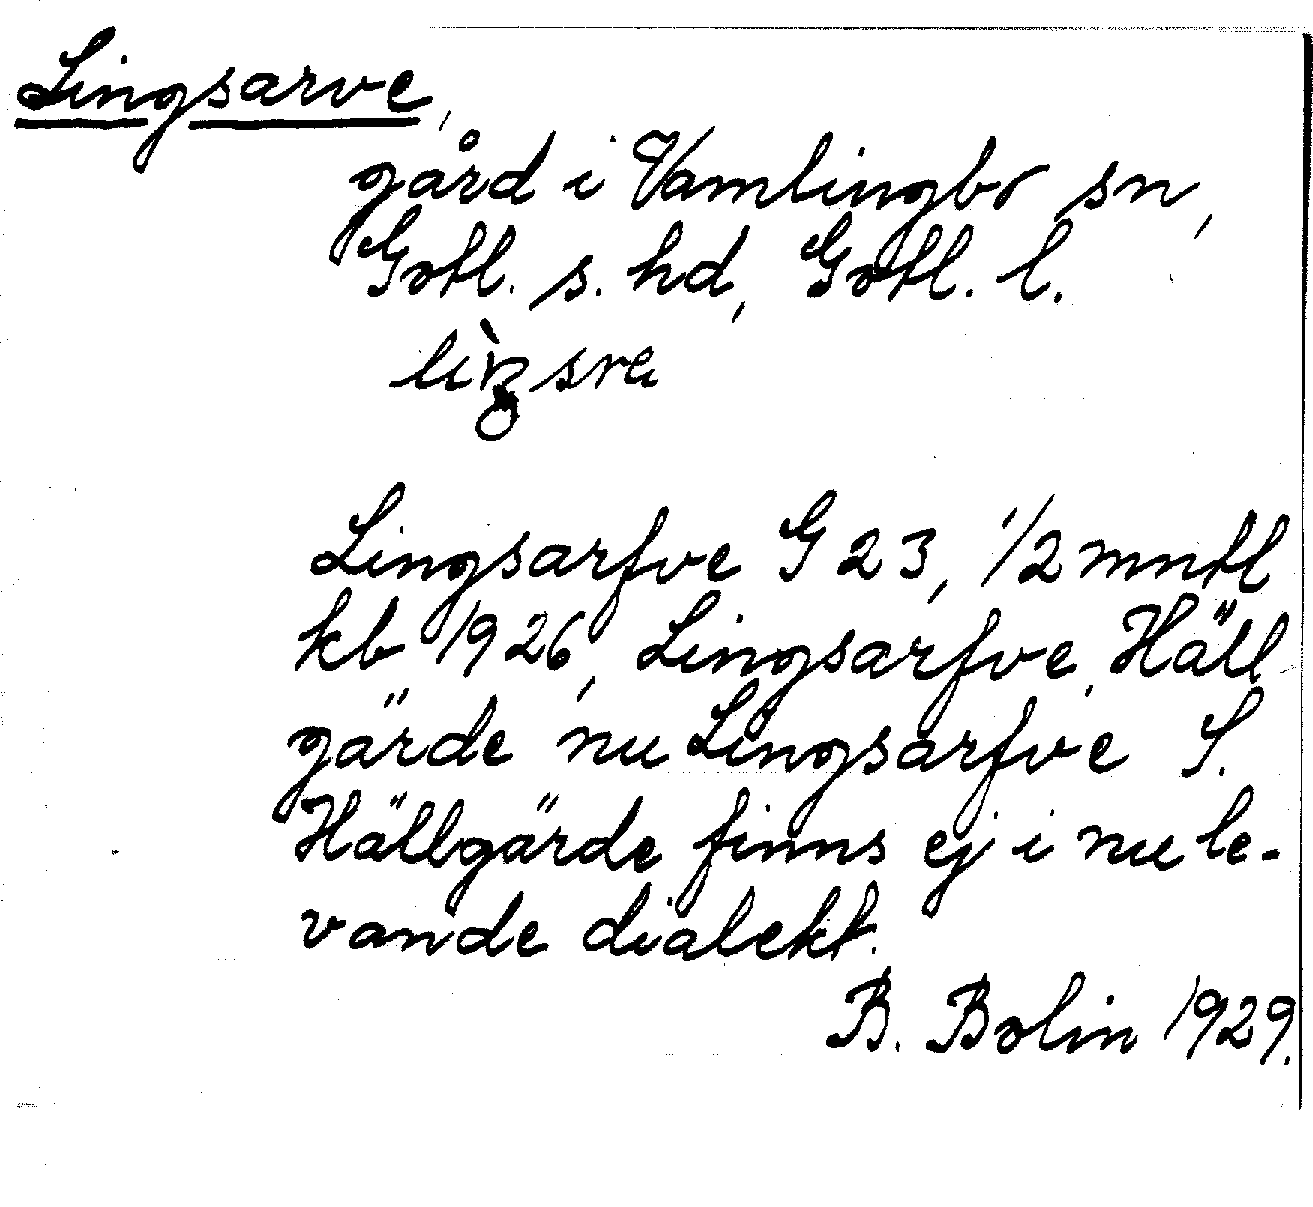 Lingsarve,
gård i Vamlingbo sn,
Gotl. s. hd, Gotl. l.
Lingsarfve G 23, 1/2 mntl
kb 1926, Lingsarfve, Häll
gärde nu Lingsarfve S.
Hällgärde finns ej i nu le-
vande dialekt.
B. Bolin 1929.